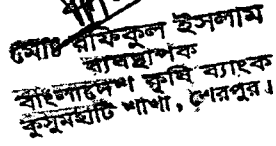 মোঃ রফিকুল ইসলাম
ব্যবস্থাপক
বাংলাদেশ কৃষি ব্যাংক
কুসুমহাটি শাখা, শেরপুর।